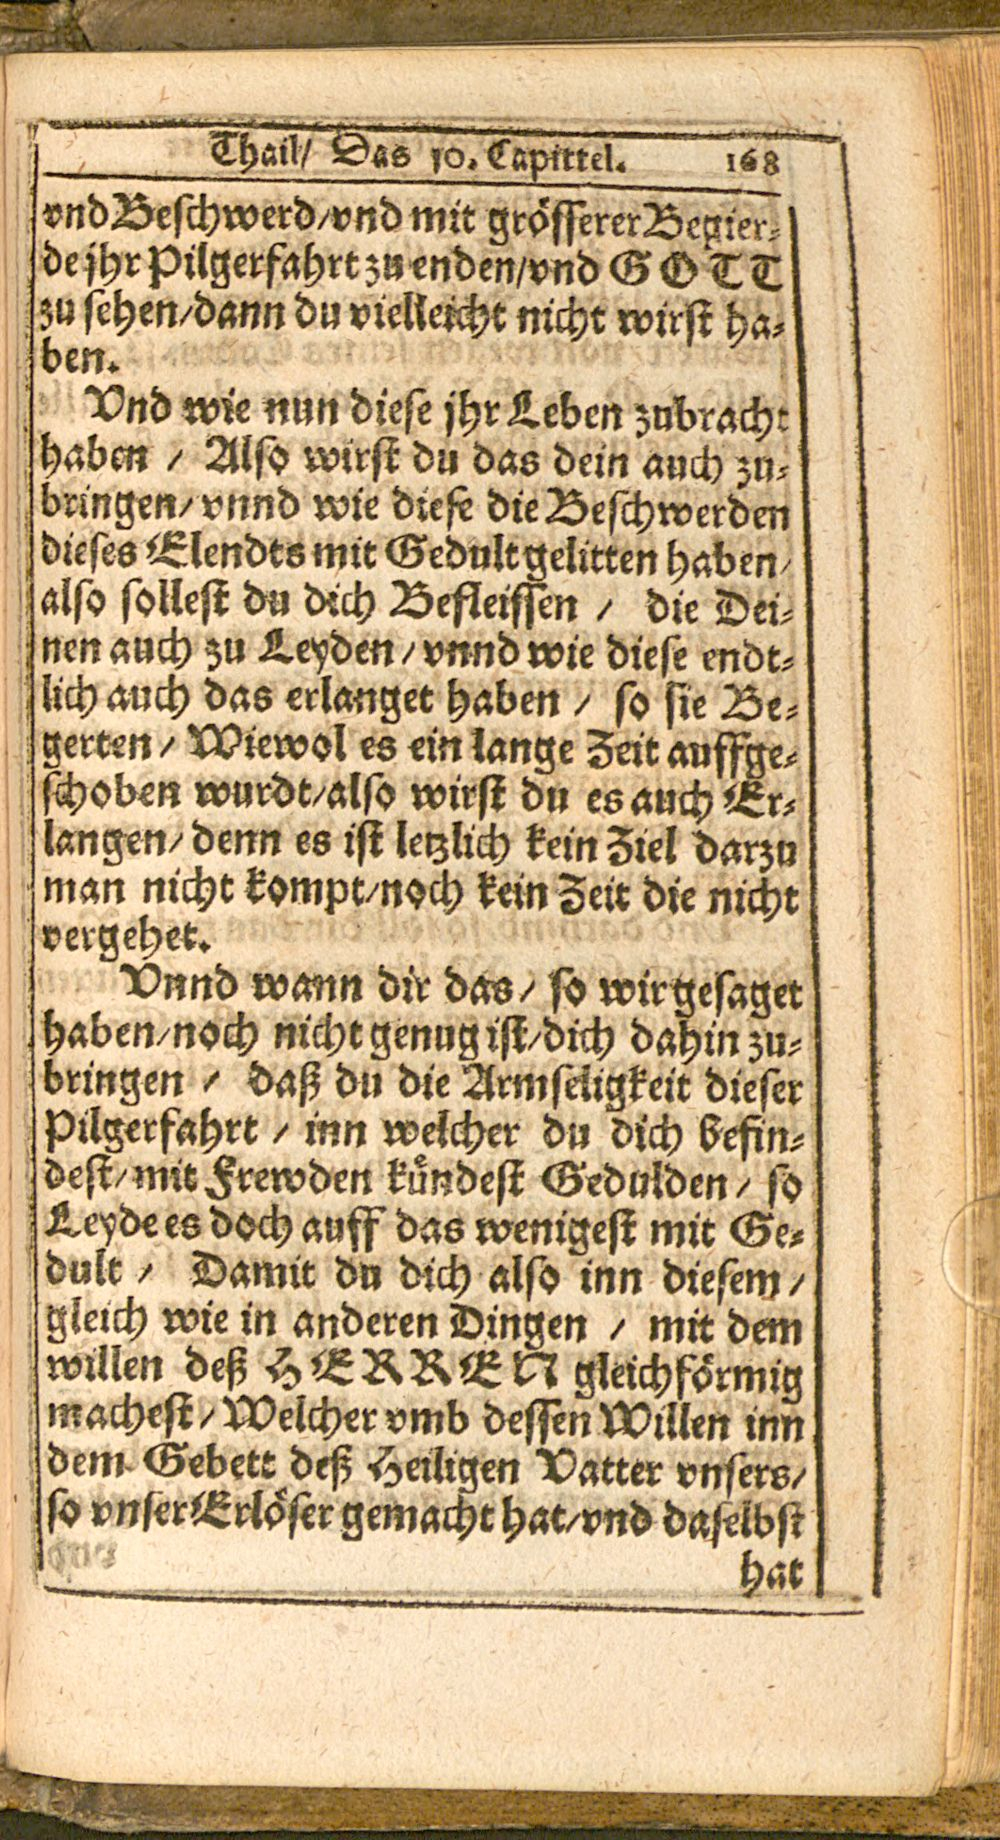 Thail/ Das 10. Capittel. 168
vnd Beschwerd/vnd mit grösserer Begier-
de jhr Pilgerfahrt zu enden/vnd GOTT
zu sehen/dann du vielleicht nicht wirst ha-
ben.
Vnd wie nun diese jhr Leben zubracht
haben / Also wirst du das dein auch zu-
bringen/ vnnd wie diese die Beschwerden
dieses Elendts mit Gedult gelitten haben/
also sollest du dich Befleissen / die Dei-
nen auch zu Leyden / vnnd wie diese endt-
lich auch das erlanget haben / so sie Be-
gerten / Wiewol es ein lange Zeit auffge-
schoben wurdt/also wirst du es auch Er-
langen/ denn es ist letzlich kein Ziel darzu
man nicht kompt/noch kein Zeit die nicht
vergehet.
Vnnd wann dir das / so wir gesaget
haben/noch nicht genug ist/dich dahin zu-
bringen / daß du die Armseligkeit dieser
Pilgerfahrt / inn welcher du dich befin-
dest/mit Frewden kündest Gedulden / so
Leyde es doch auff das wenigest mit Ge-
dult / Damit du dich also inn diesem /
gleich wie in anderen Dingen / mit dem
willen deß HERREN gleichförmig
machest / Welcher vmb dessen Willen inn
dem Gebett deß Heiligen Vatter vnsers/
so vnser Erlöser gemacht hat/vnd daselbst
hat